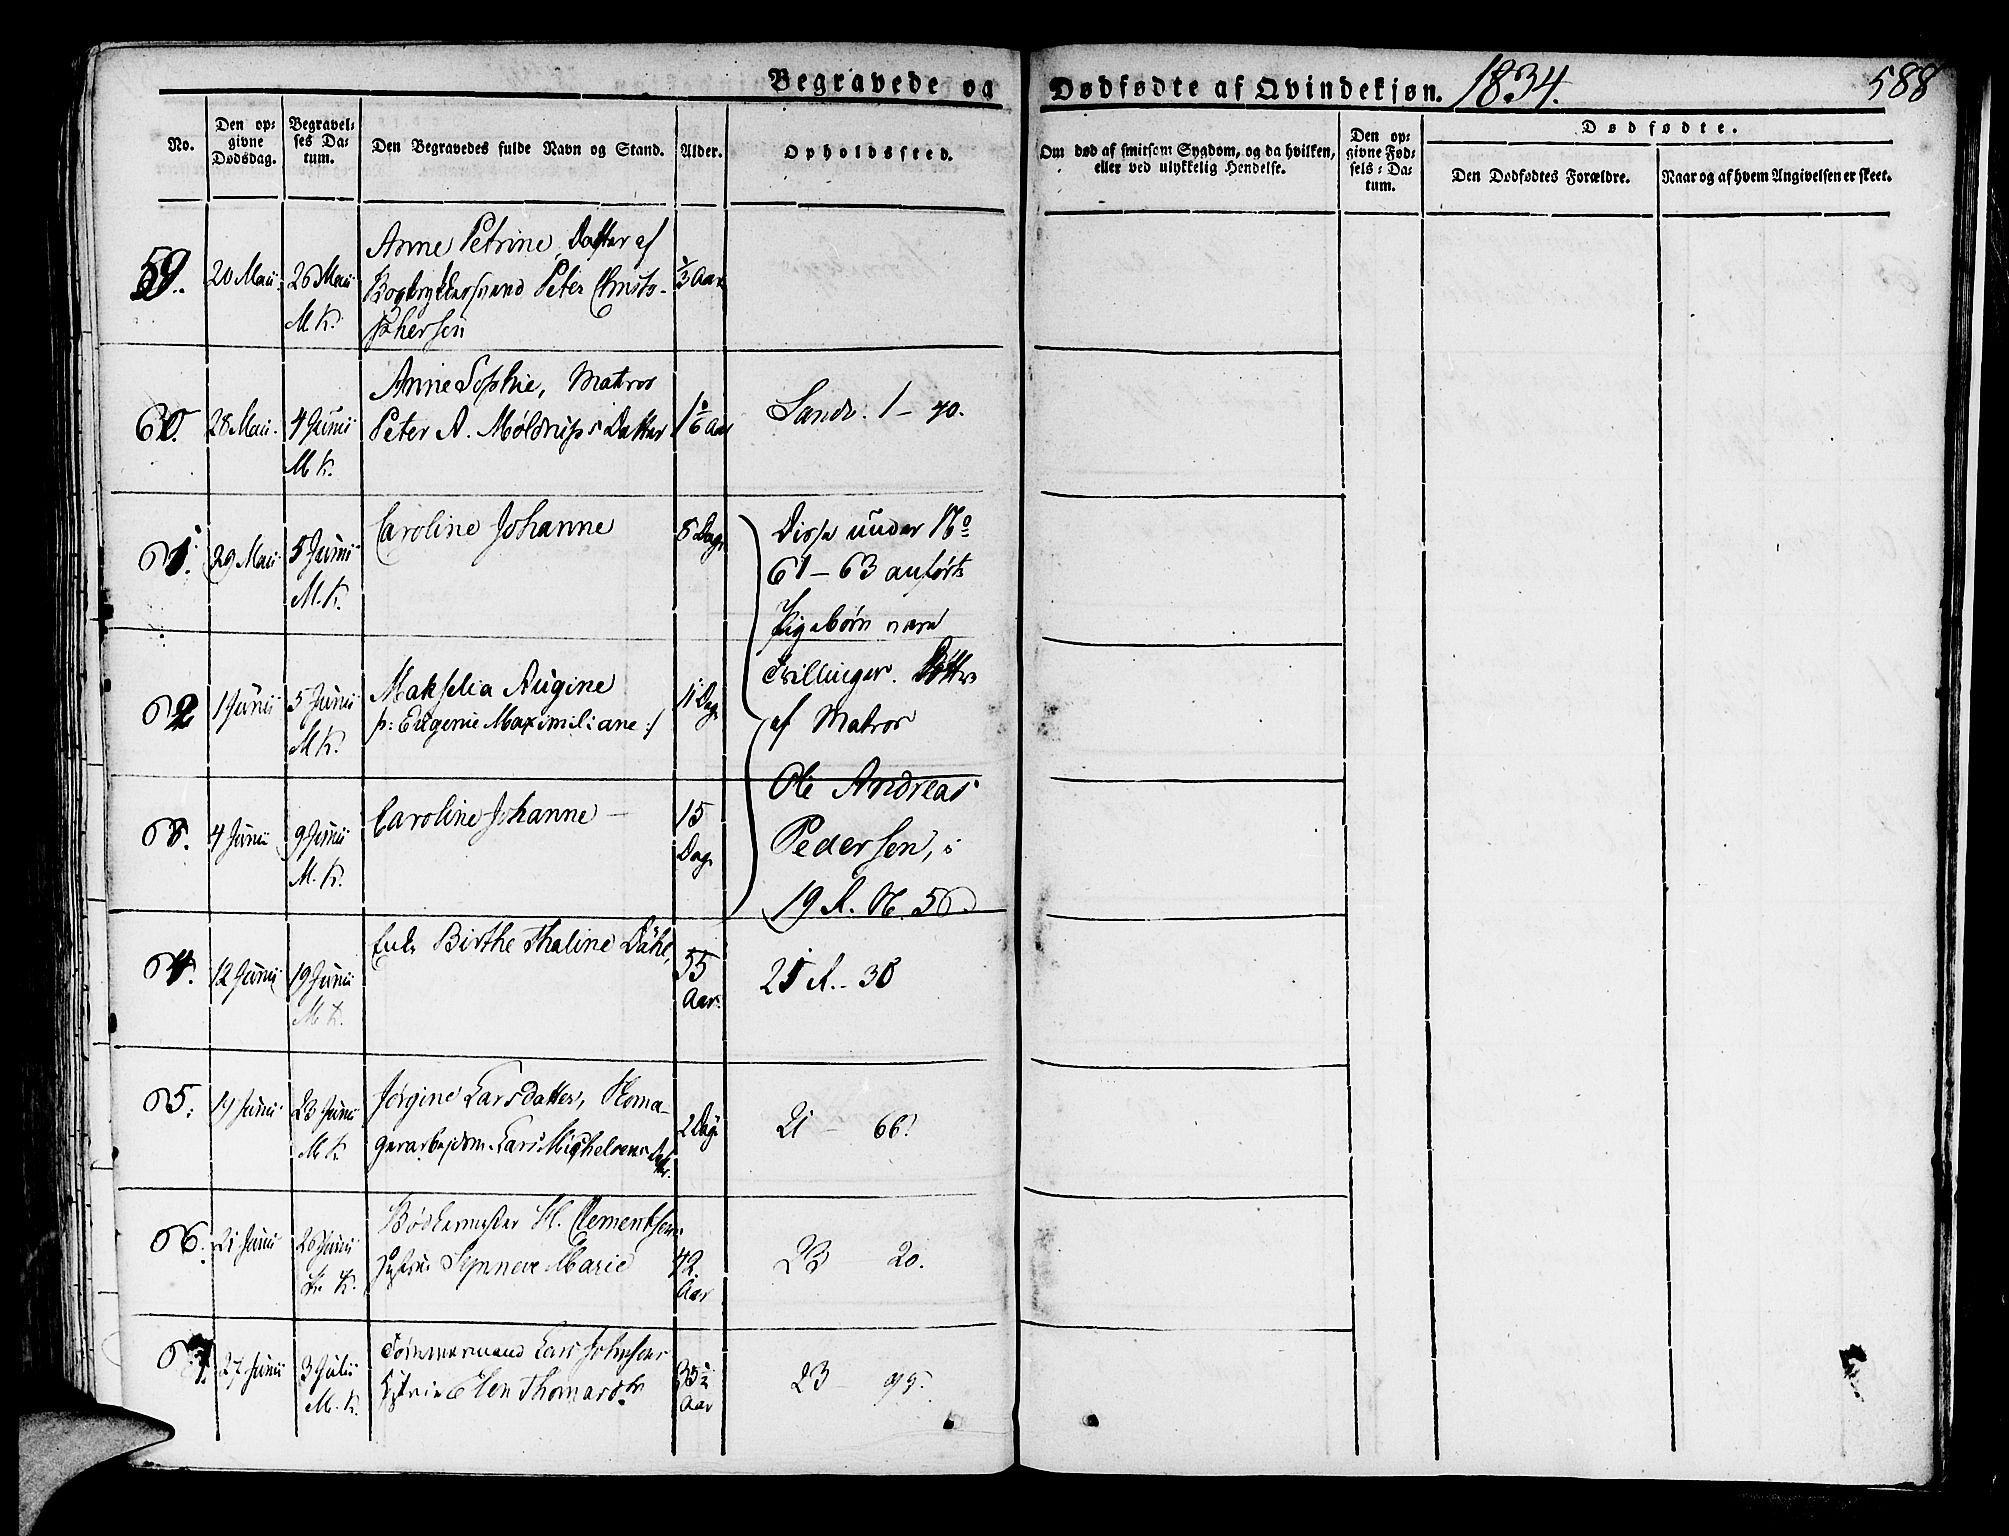 Begravede og Dødfødte af Qvindekjøn. 1834. 588
No.
Den op-
givne
Dødsdag.
Begravel-
ses Da-
tum.
Den Begravedes fulde Navn og Stand.
Alder.
Opholdssted.
Om død af smitsom Sygdom, og da hvilken,
eller ved ulykkelig Hendelse.
Den op-
givne Fød-
sels-Da-
tum.
Dødfødte.
Den Dødfødtes Forældre.
Naar og af hvem Angivelsen er skeet.
59. 20 Maii. 26 Maii M.K.
Anne Petrine, Datter af
Bogtrykkersvend Peter Christo-
phersen
1/3 Aar
60. 28 Maii. 4 Junii M.K.
Anne Sophie, Matros
Peter A. Møldrups Datter
1 5/6 Aar
Sandv. 1 - 40.
61. 29 Maii 5 Junii M.K.
Caroline Johanne
8 Dage
Disse under No
61 - 63 anførte
Pigebørn vare
Trillinger. Døttre
af Matros
Ole Andreas
Pedersen, i
19 R. N. 56.
62 1 Junii 5 Junii M.K.
Makselia Augine
/: Eugenie Maximiliane :/
11 Dage
63. 4 Junii 9 Junii M.K.
Caroline Johanne -
15
Dage
64. 12 Junii 19 Junii M.K.
Enke Birthe Thaline Dahl,
55
Aar.
21 R. - 38
65. 19 Junii 23 Junii M.K.
Jørgine Larsdatter,
Lars Michelsens Datter.
2 Dage
21 - 66.
66. 21 Junii 26 Junii K.
Bødkermester H. Clementsens
Hustru Synneve Marie
42
Aar
23 20.
67. 27 Junii 3 Julii M.K.
Tømmermand Lars Johnsens
Hustrue Elen Thomasdtr.
35 1/2
Aar
23 - 95.